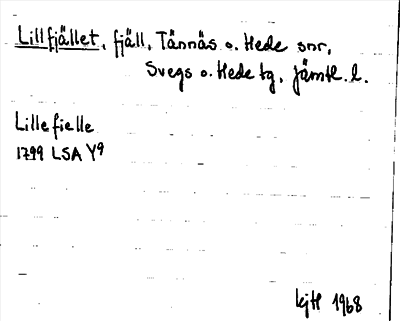 Lillfjället, fjäll, Tännäs o. Hede snr,
Svegs o. Hede tg, Jämtl. l.
Lillefielle
1799 LSA Y9
kjtl 1968